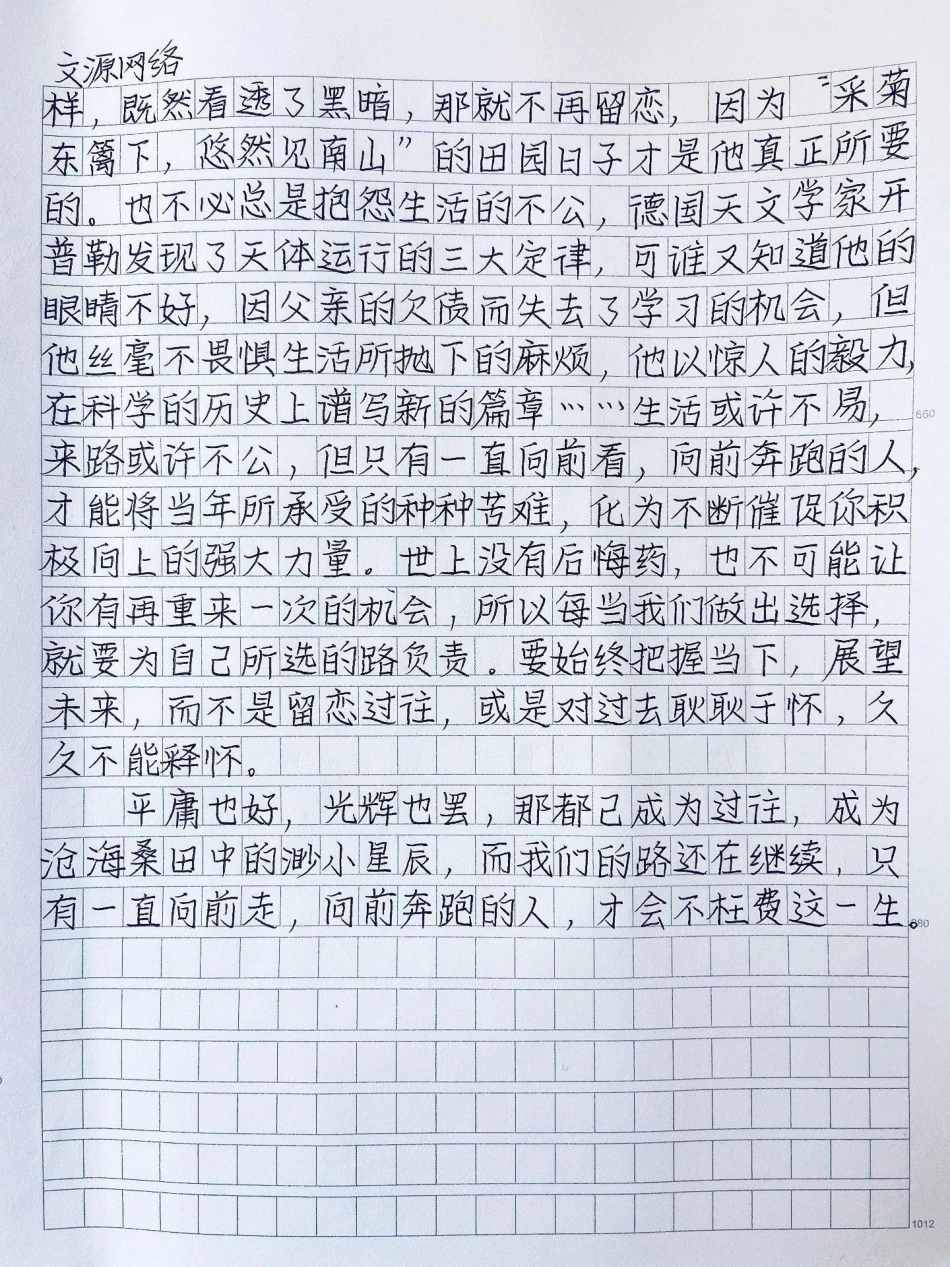 文源网络
样，既然看透了黑暗，那就不再留恋，因为“采菊
东篱下，悠然见南山”的田园日子才是他真正所要
的。也不必总是抱怨生活的不公，德国天文学家开
普勒发现了天体运行的三大定律，可谁又知道他的
眼睛不好，因父亲的欠债而失去了学习的机会，但
他丝毫不畏惧生活所抛下的麻烦，他以惊人的毅力，
在科学的历史上谱写新的篇章……生活或许不易，
660
来路或许不公，但只有一直向前看，向前奔跑的人，
才能将当年所承受的种种苦难，化为不断催促你积
极向上的强大力量。世上没有后悔药，也不可能让
你有再重来一次的机会，所以每当我们做出选择，
就要为自己所选的路负责。要始终把握当下，展望
未来，而不是留恋过往，或是对过去耿耿于怀，久
久不能释怀。
平庸也好，光辉也罢，那都已成为过往，成为
沧海桑田中的渺小星辰，而我们的路还在继续，只
有一直向前走，向前奔跑的人，才会不枉费这一生。
880
1012